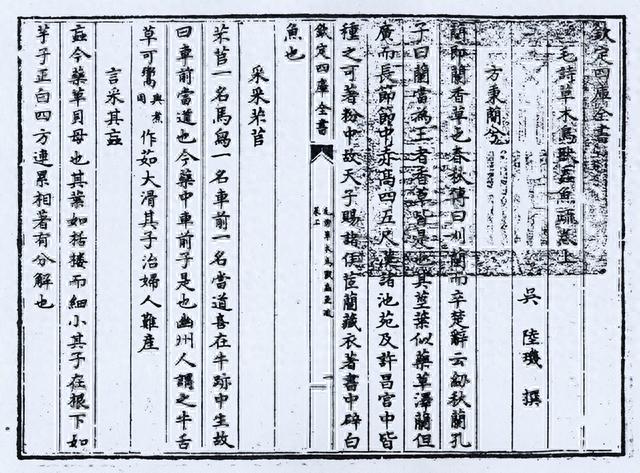 欽定四庫全書
毛詩草木鳥獸蟲魚疏卷上
吳 陸璣 撰
方秉蕑兮
蕑即蘭香草也春秋傳曰刈蘭而卒楚辭云紉秋蘭孔
子曰蘭當為王者香草皆是也其莖葉似藥草澤蘭但
廣而長節節中赤高四五尺漢諸池苑及許昌宮中皆
種之可著粉中故天子賜諸侯茝蘭藏衣著書中辟白
欽定四庫全書
毛詩草木鳥獸蟲魚疏
卷上
一
魚也
采采芣苢
芣苢一名馬舄一名車前一名當道喜在牛跡中生故
曰車前當道也今藥中車前子是也幽州人謂之牛舌
草可鬻與煮同作茹大滑其子治婦人難産
言采其蝱
蝱今藥草貝母也其葉如栝樓而細小其子在根下如
芋子正白四方連累相著有分解也